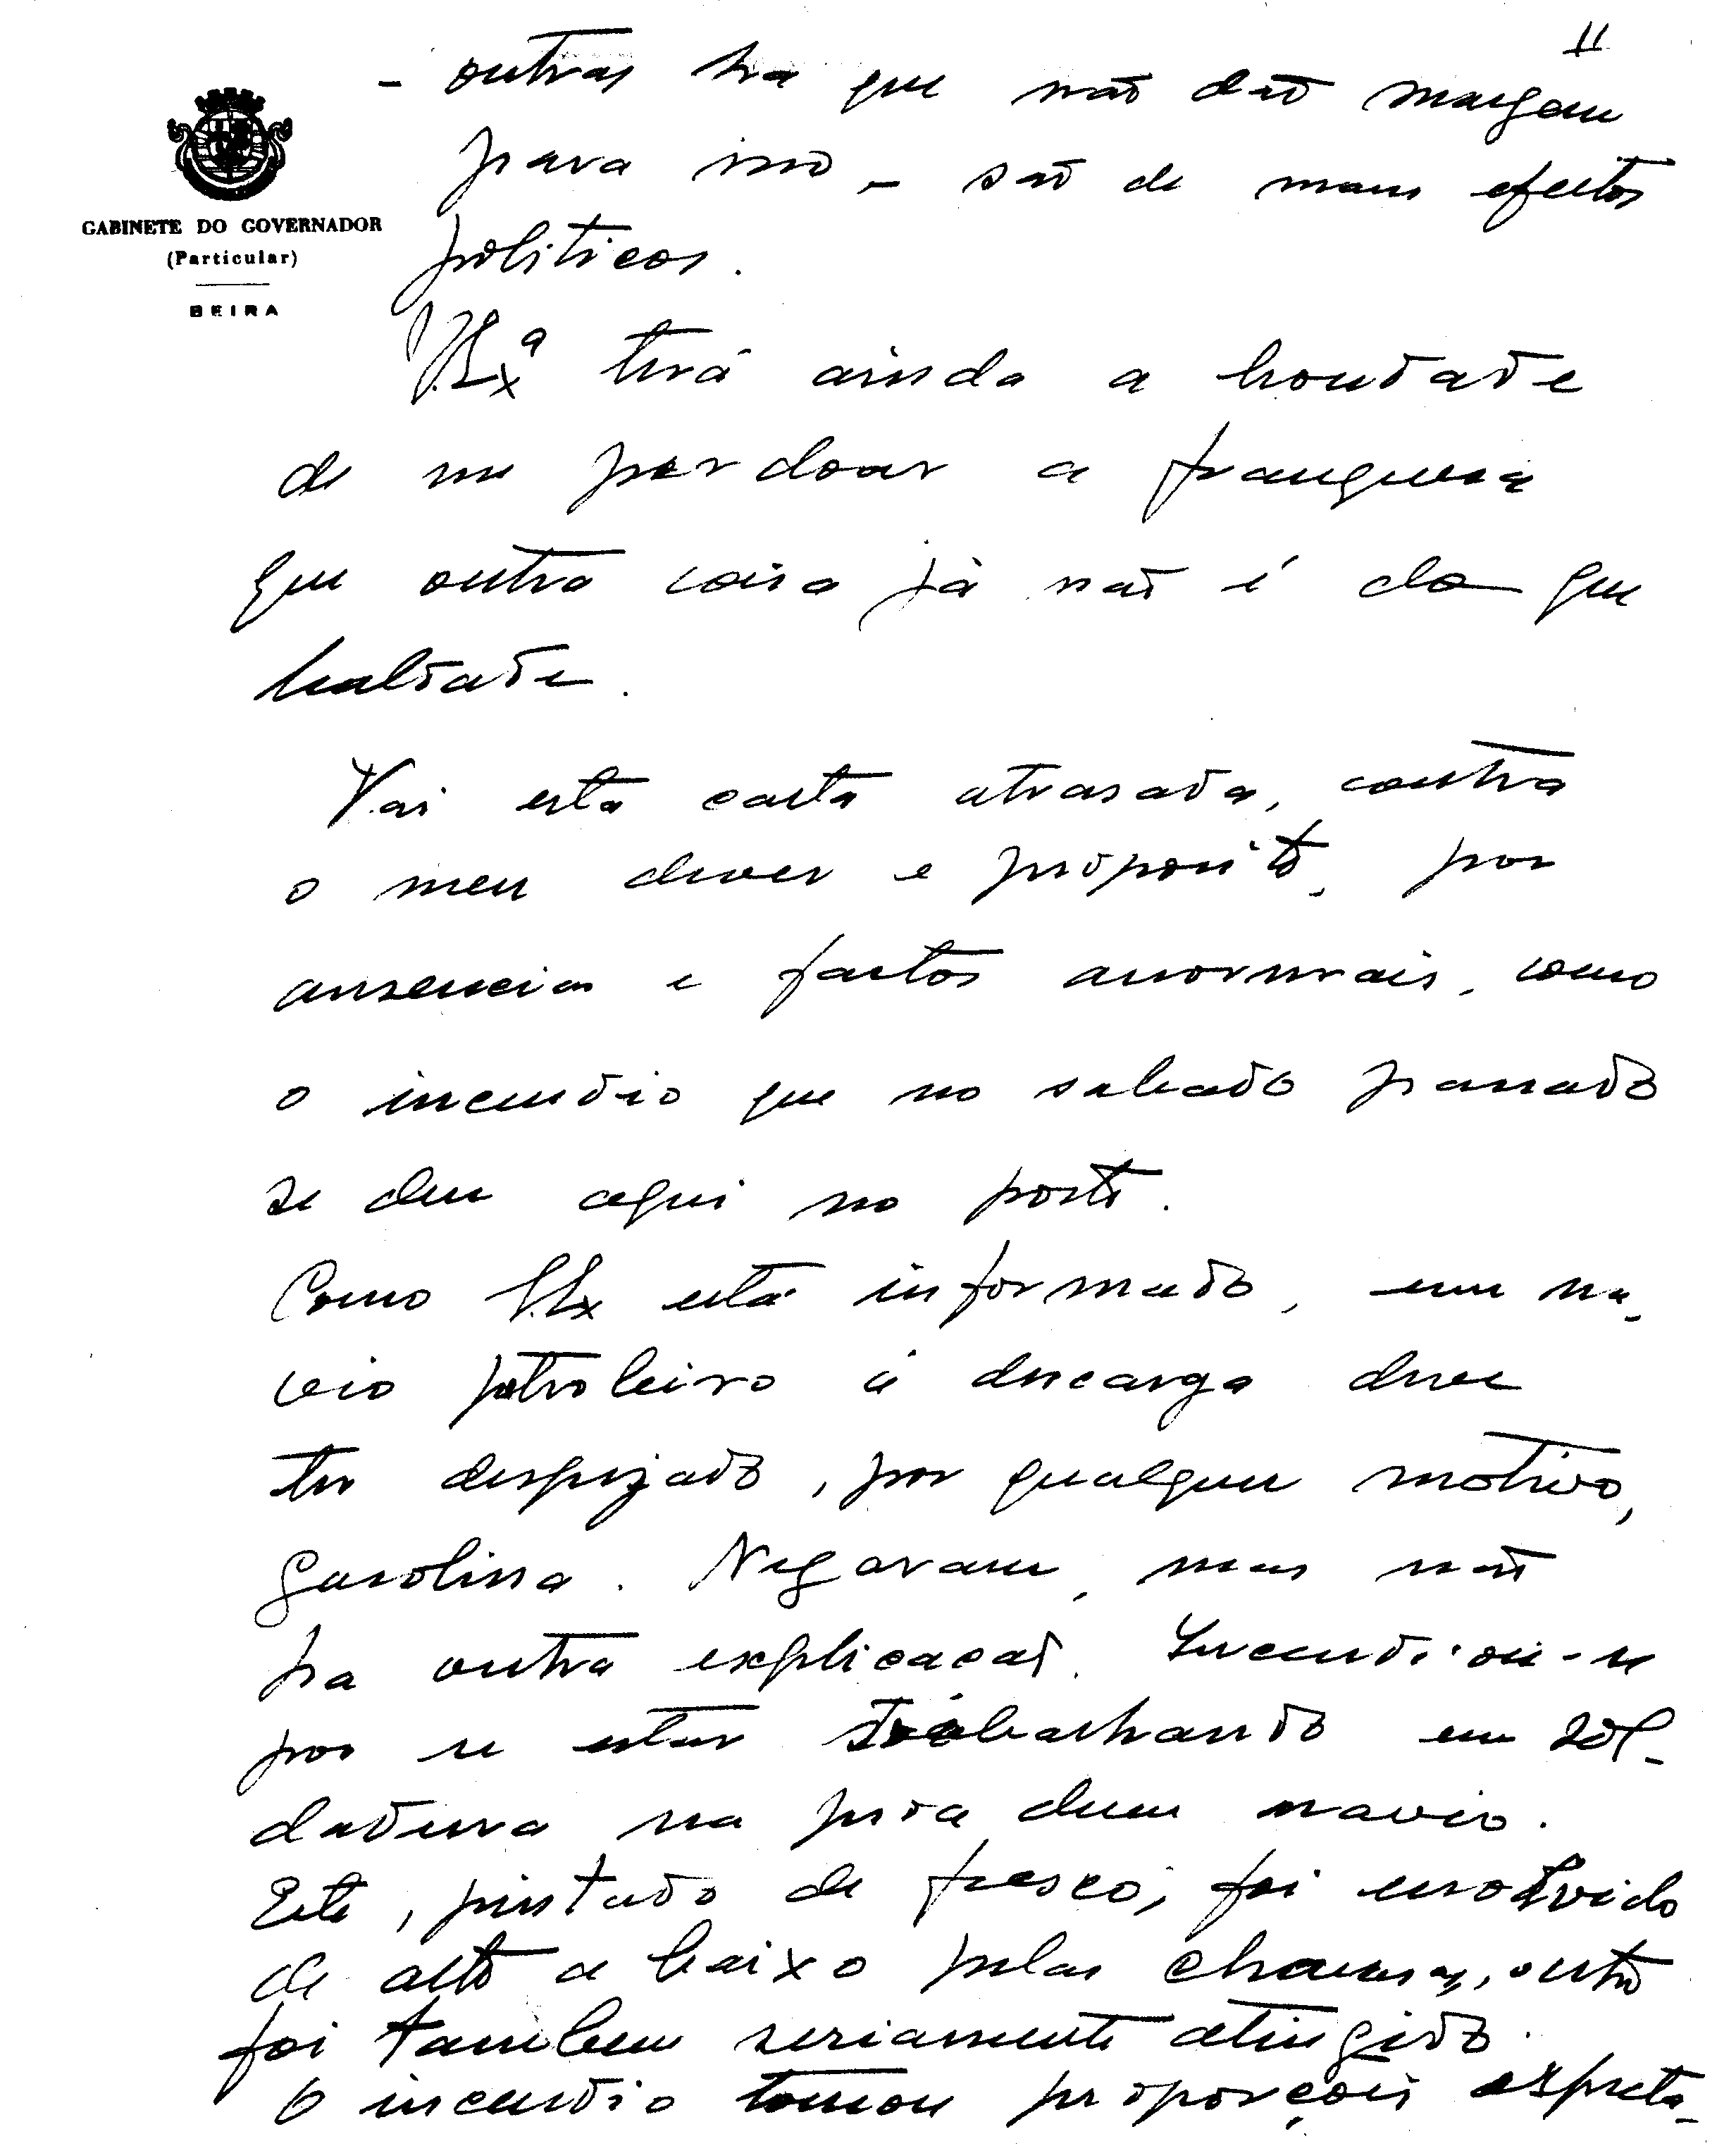 11
GABINETE DO GOVERNADOR
(Particular)
BEIRA
- outras ha que não dão margem
para isso - são de maus efeitos
politicos.
V.Exª terá ainda a bondade
de me perdoar a franqueza
que outra coisa já não é do que
lealdade.
Vai esta carta atrasada, contra
o meu dever e proposito, por
ausencias e factos anormais, como
o incendio que no sabado passado
se deu aqui no porto.
Como V.Ex está informado, um na-
vio petroleiro á descarga deve
ter despejado, por qualquer motivo,
gasolina. Negaram, mas não
ha outra explicação. Incendiou-se
por se estar trabalhando em sol-
dadura na prôa dum navio.
Este, pintado de fresco, foi envolvido
de alto a baixo pelas chamas, outro
foi tambem seriamente atingido.
O incendio tomou proporções espeta-